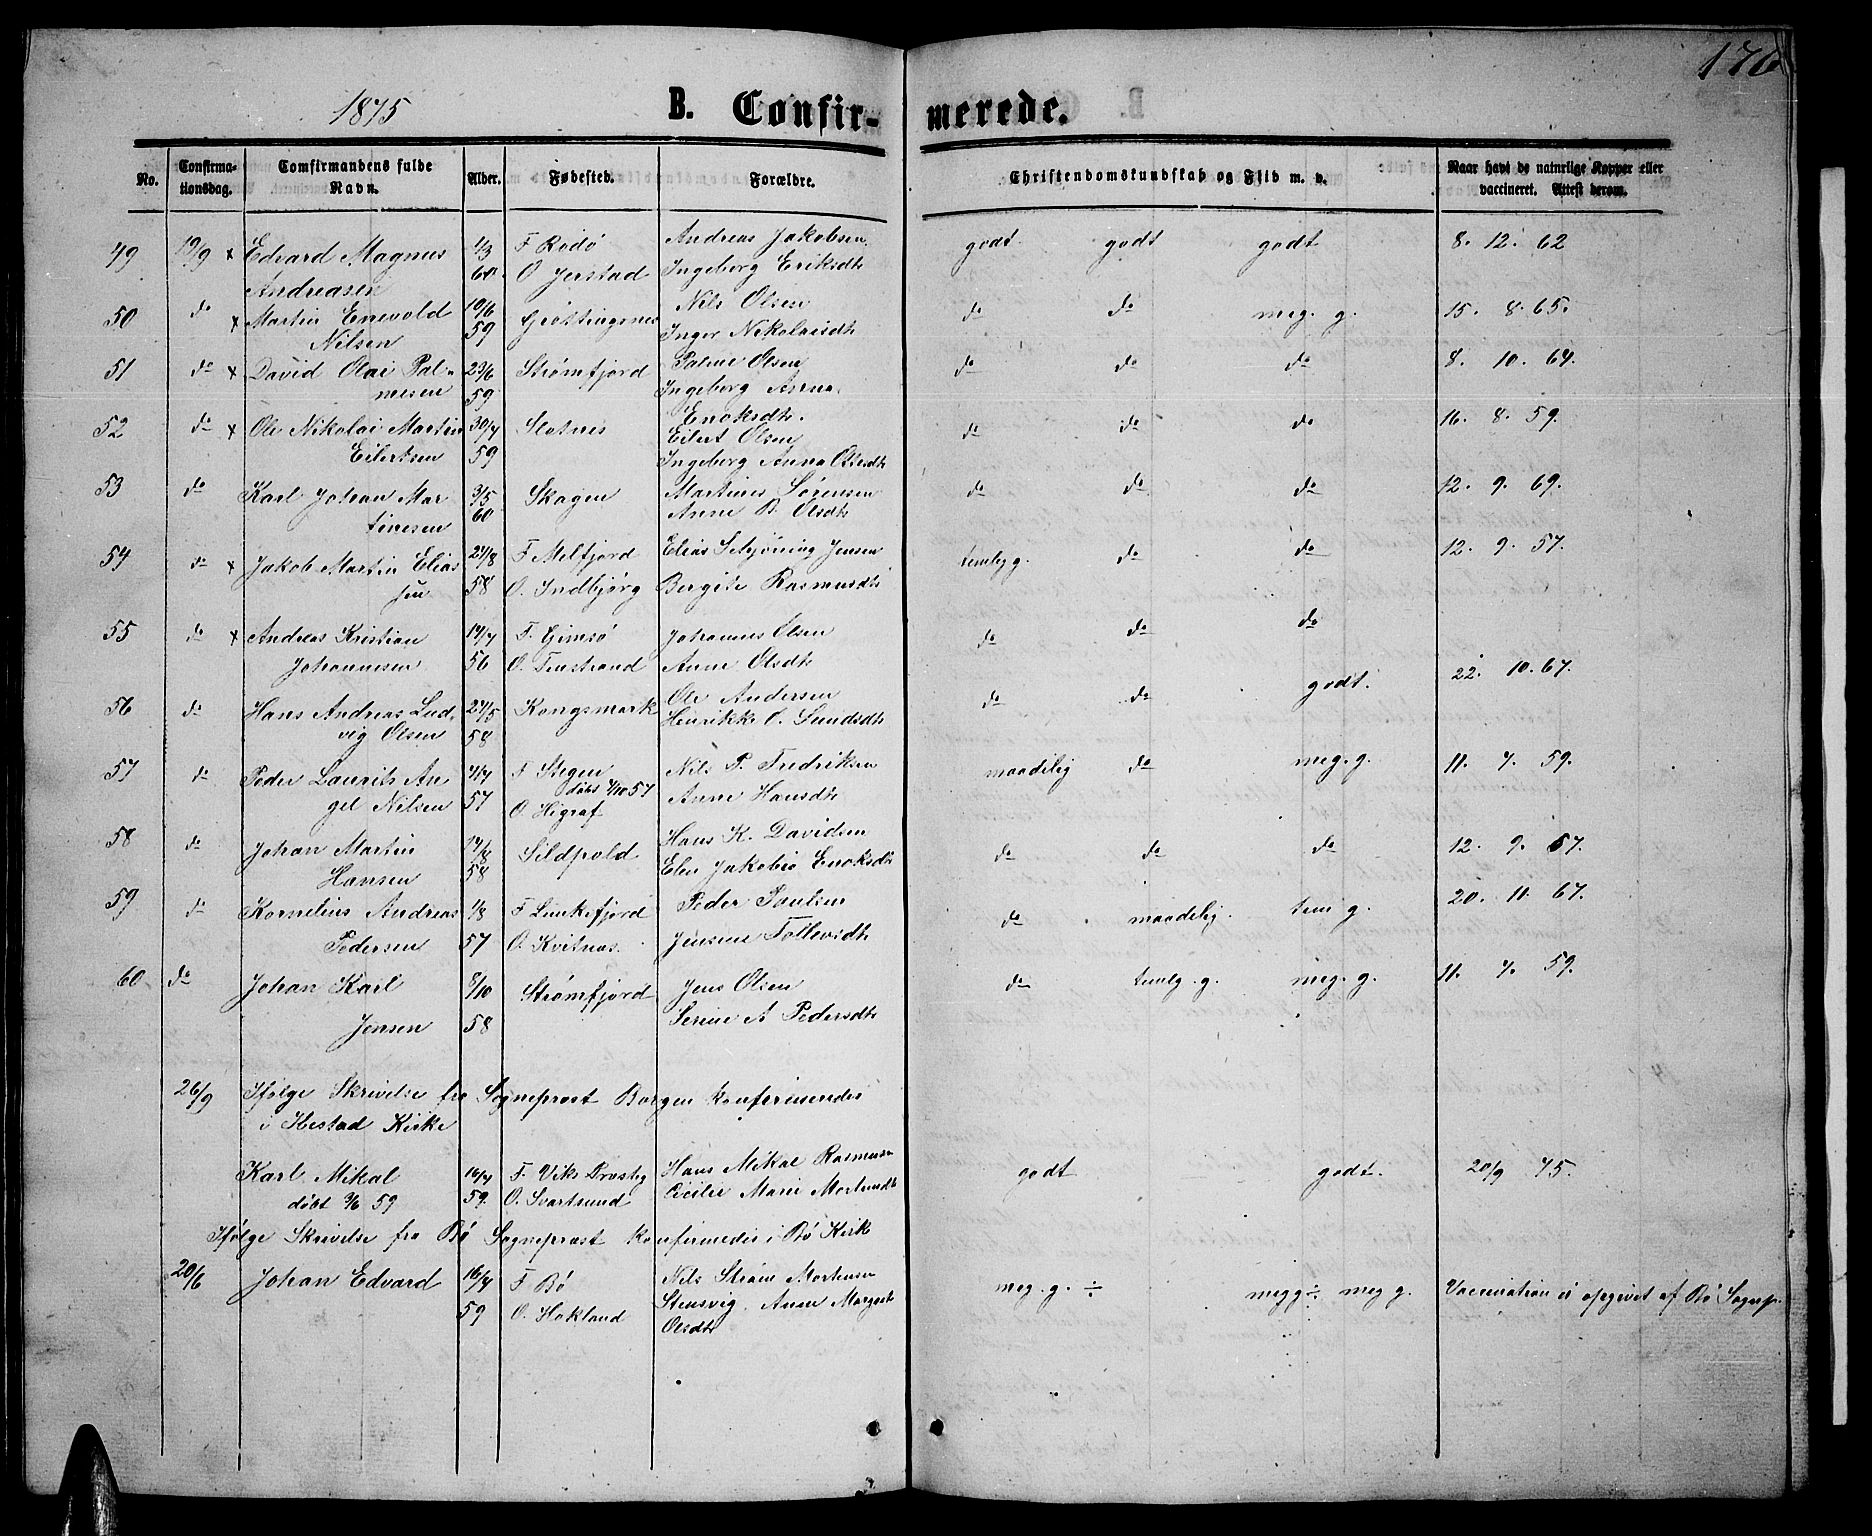 176
1875
B. Confir-
merede.
No.
Confirma-
tionsdag.
Comfirmandens fulde
Navn.
Alder.
Fødested.
Forældre.
Christendomskundskab og Flid m. v.
Naar havt de naturlige Kopper eller
vaccineret. Attest derom.
49 19/9 x Edvard Magnus 1/3 F Rødø Andreas Jakobsen godt. godt godt 8. 12. 62
Andreasen 60. O Jerstad Ingeborg Eriksdtr
50 do x Martin Enevold 10/6 Grøttingsnes Nils Olsen do do meg. g. 15. 8. 65.
Nilsen 59 Inger Nikolaisdtr
51 do x David Olai Pal- 23/6 Strømfjord Palme Olsen do do do 8. 10. 64.
mesen 59 Ingeborg Anna
Enoksdtr.
52 do x Ole Nikolai Martin 30/7 Slotnes Eilert Olsen do do do 16. 8. 59.
Eilertsen 59 Ingeborg Anna Olsdtr
53 do Karl Johan Mar 3/5 Skagen Martines Sørensen do do do 12. 9. 69.
tinesen 60 Anne B. Olsdtr
54 do x Jakob Martin Elias 27/8 F Melfjord Elias Schjøning Jensen temlig g. do do 12. 9. 57.
sen 58 O. Indbjørg Bergite Rasmusdtr
55 do x Andreas Kristian 14/7 F. Gimsø Johannes Olsen do do do
Johannesen 56 O. Finstrand Anne Olsdtr
56 do Hans Andreas Lud- 27/5 Kongsmark Ole Andersen do do godt. 22. 10. 67.
vig Olsen 58 Henrikke O. Sundsdtr
57 do Peder Laurits An F Stegen Nils P. Fredriksen maadelig do meg. g. 11. 7. 59.
gel Nilsen 57 døbt 4/10 57 Anne Hansdtr
O. Higraf
58 do Johan Martin 14/8 Sildpold Hans K. Davidsen do do do 12. 9. 57.
Hansen 58 Elen Jakobia Enoksdtr
59 do Kornelius Andreas 1/8 F Lenkefjord Peder Paulsen do maadelig. tem g. 20. 11. 67.
Pedersen 57 O. Kvitnæs. Jensine Tollevsdtr
60 do Johan Karl 8/10 Strømfjord Jens Olsen do temlg. g. meg. g. 11. 7. 59.
Jensen 58 Serine A Pedersdtr
26/9 Ifølge Skrivelse fra Sogneprest Borgen konfirmeredes
i Hestad Kirke
Karl Mikal 16/4 F. Viks Prestg Hans Mikal Rasmusen godt godt. 20/9 75.
døbt 3/6 59 59. O. Svartsund Cecilie Marie Mortensdtr
Ifølge Skrivelse fra Bø Sogneprest konfirmedes i Bø Kirke
20/6 Johan Edvard 16/4 F Bø Nils Strøm Mortensen meg. g. ÷ meg g ÷ meg g. Vaccination ei opgivet af Bø Sognep.
59 O. Hokland Stensvig. Anne Margrete
Olsdtr